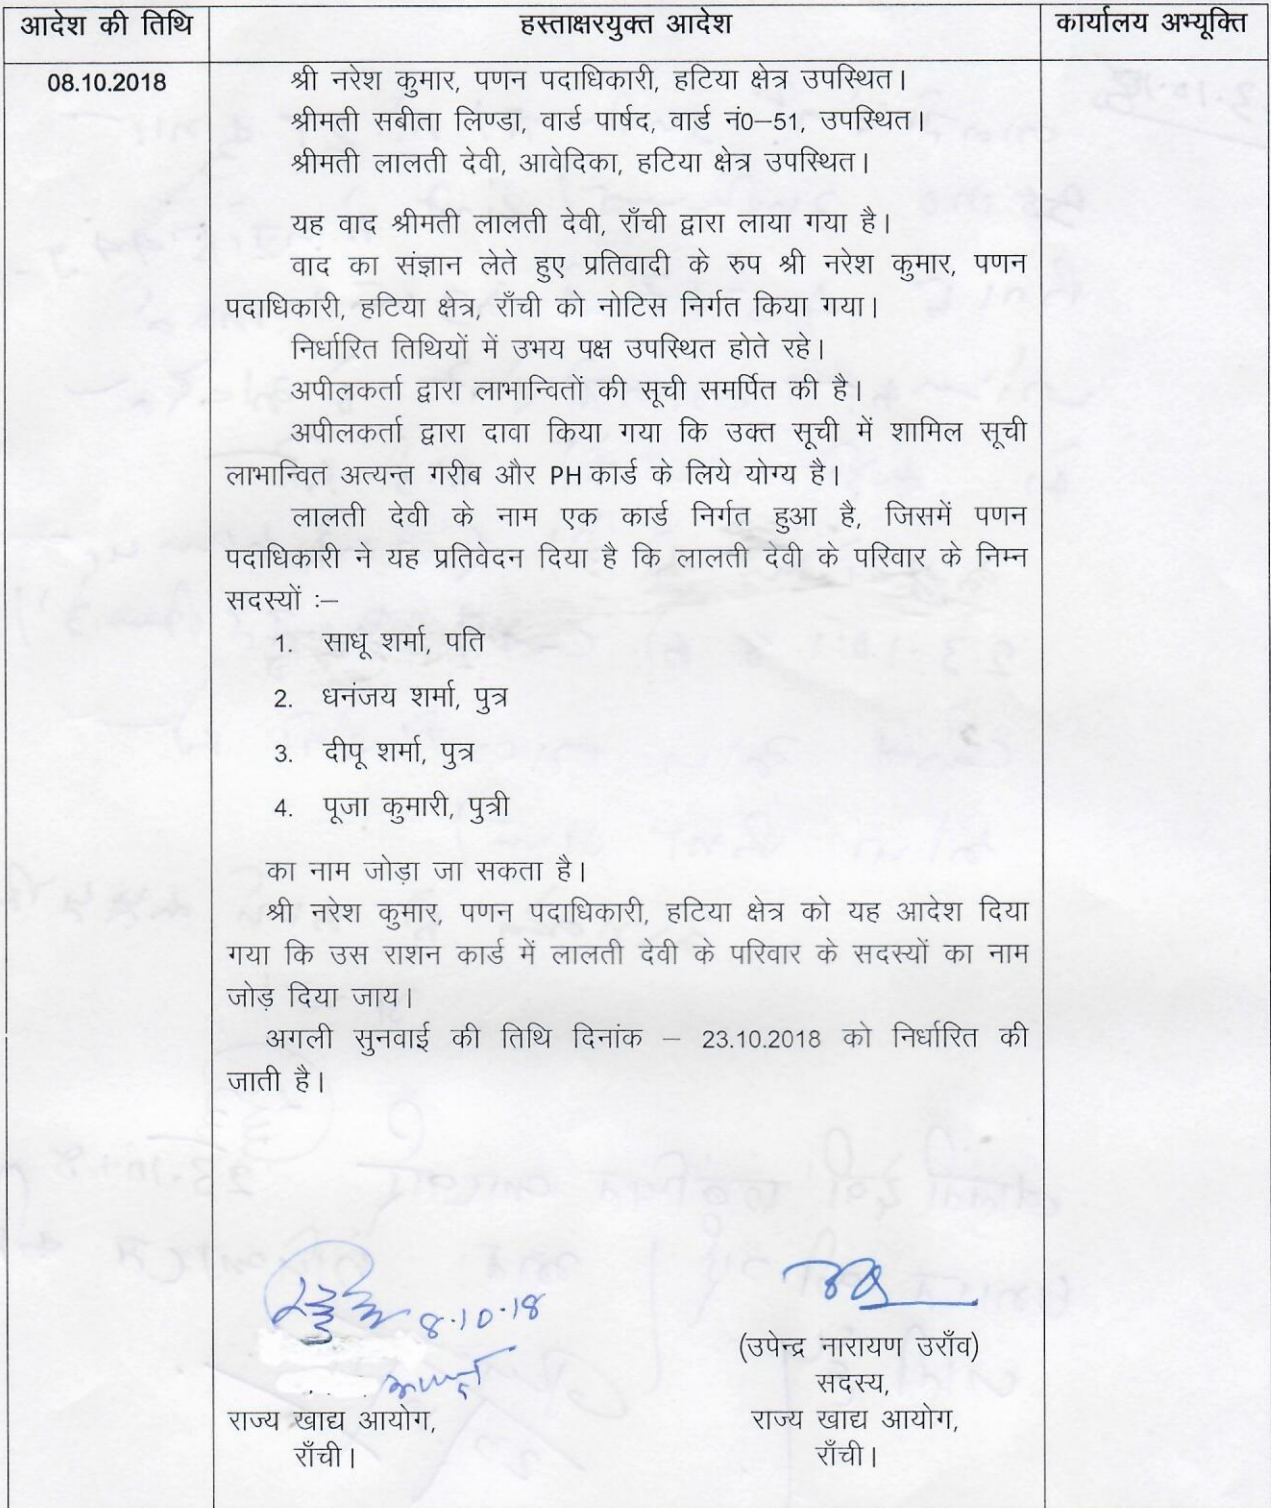 आदेश की तिथि
हस्ताक्षरयुक्त आदेश
कार्यालय अभ्यूक्ति
08.10.2018
श्री नरेश कुमार, पणन पदाधिकारी, हटिया क्षेत्र उपस्थित।
श्रीमती सबीता लिण्डा, वार्ड पार्षद, वार्ड नं0–51, उपस्थित।
श्रीमती लालती देवी, आवेदिका, हटिया क्षेत्र उपस्थित।
यह वाद श्रीमती लालती देवी, राँची द्वारा लाया गया है।
वाद का संज्ञान लेते हुए प्रतिवादी के रुप श्री नरेश कुमार, पणन
पदाधिकारी, हटिया क्षेत्र, राँची को नोटिस निर्गत किया गया।
निर्धारित तिथियों में उभय पक्ष उपस्थित होते रहे।
अपीलकर्ता द्वारा लाभान्वितों की सूची समर्पित की है।
अपीलकर्ता द्वारा दावा किया गया कि उक्त सूची में शामिल सूची
लाभान्वित अत्यन्त गरीब और PH कार्ड के लिये योग्य है।
लालती देवी के नाम एक कार्ड निर्गत हुआ है, जिसमें पणन
पदाधिकारी ने यह प्रतिवेदन दिया है कि लालती देवी के परिवार के निम्न
सदस्यों :–
1. साधू शर्मा, पति
2. धनंजय शर्मा, पुत्र
3. दीपू शर्मा, पुत्र
4. पूजा कुमारी, पुत्री
का नाम जोड़ा जा सकता है।
श्री नरेश कुमार, पणन पदाधिकारी, हटिया क्षेत्र को यह आदेश दिया
गया कि उस राशन कार्ड में लालती देवी के परिवार के सदस्यों का नाम
जोड़ दिया जाय।
अगली सुनवाई की तिथि दिनांक – 23.10.2018 को निर्धारित की
जाती है।
8.10.18
राज्य खाद्य आयोग,
राँची।
(उपेन्द्र नारायण उराँव)
सदस्य,
राज्य खाद्य आयोग,
राँची।